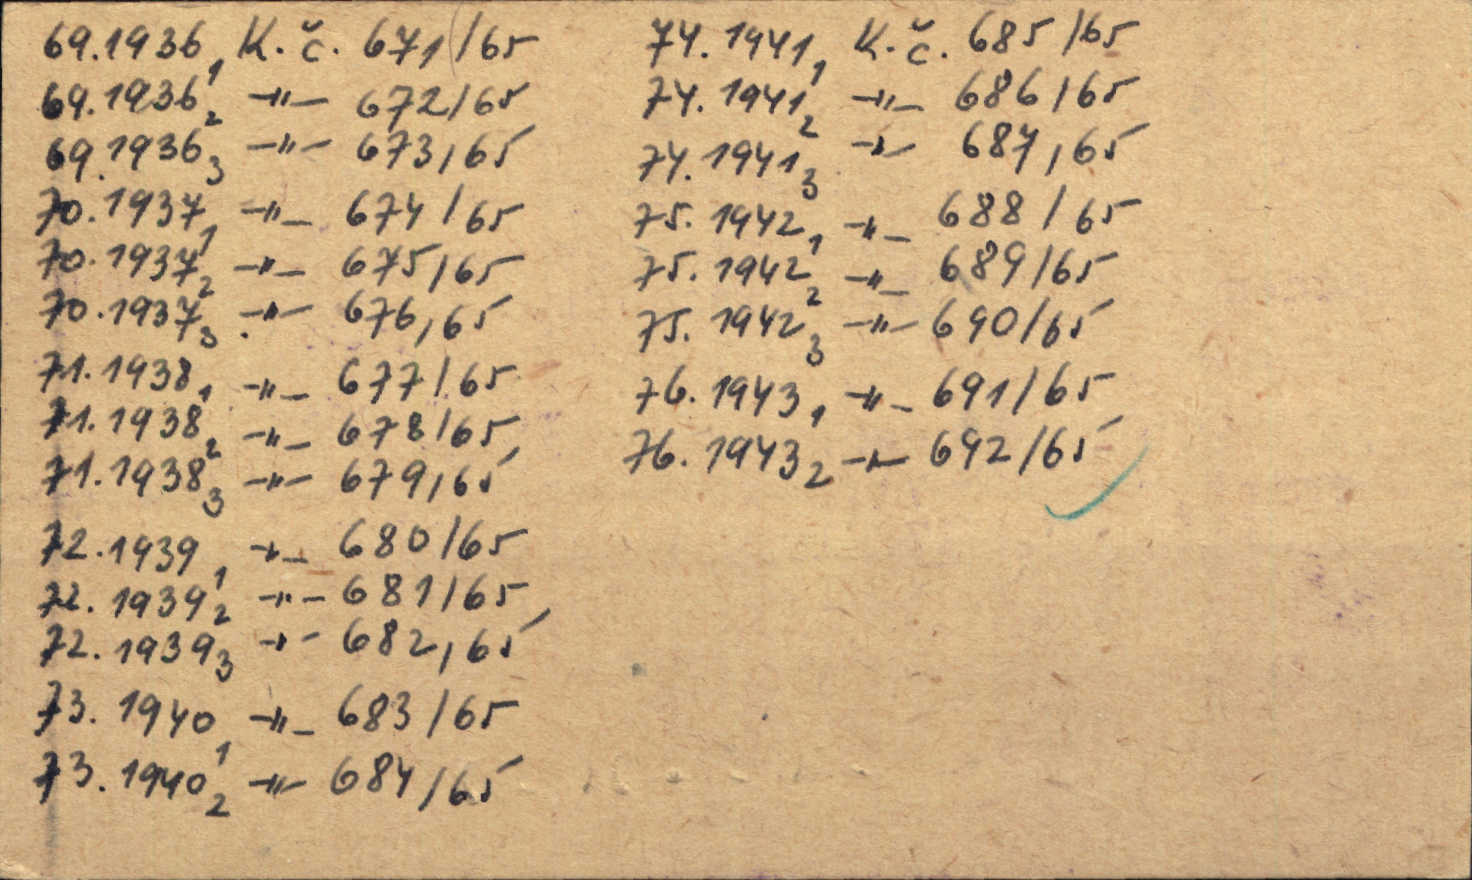 69.1936,1 K.č. 671/65
69.1936,2 -"- 672/65
69.1936,3 -"- 673/65
70.1937,1 -"- 674/65
70.1937,2 -"- 675/65
70.1937,3 -"- 676/65
71.1938,1 -"- 677/65
71.1938,2 -"- 678/65
71.1938,3 -"- 679/65
72.1939,1 -"- 680/65
72.1939,2 -"- 681/65
72.1939,3 -"- 682/65
73.1940,1 -"- 683/65
73.1940,2 -"- 684/65
74.1941,1 K.č. 685/65
74.1941,2 -"- 686/65
74.1941,3 -"- 687/65
75.1942,1 -"- 688/65
75.1942,2 -"- 689/65
75.1942,3 -"- 690/65
76.1943,1 -"- 691/65
76.1943,2 -"- 692/65